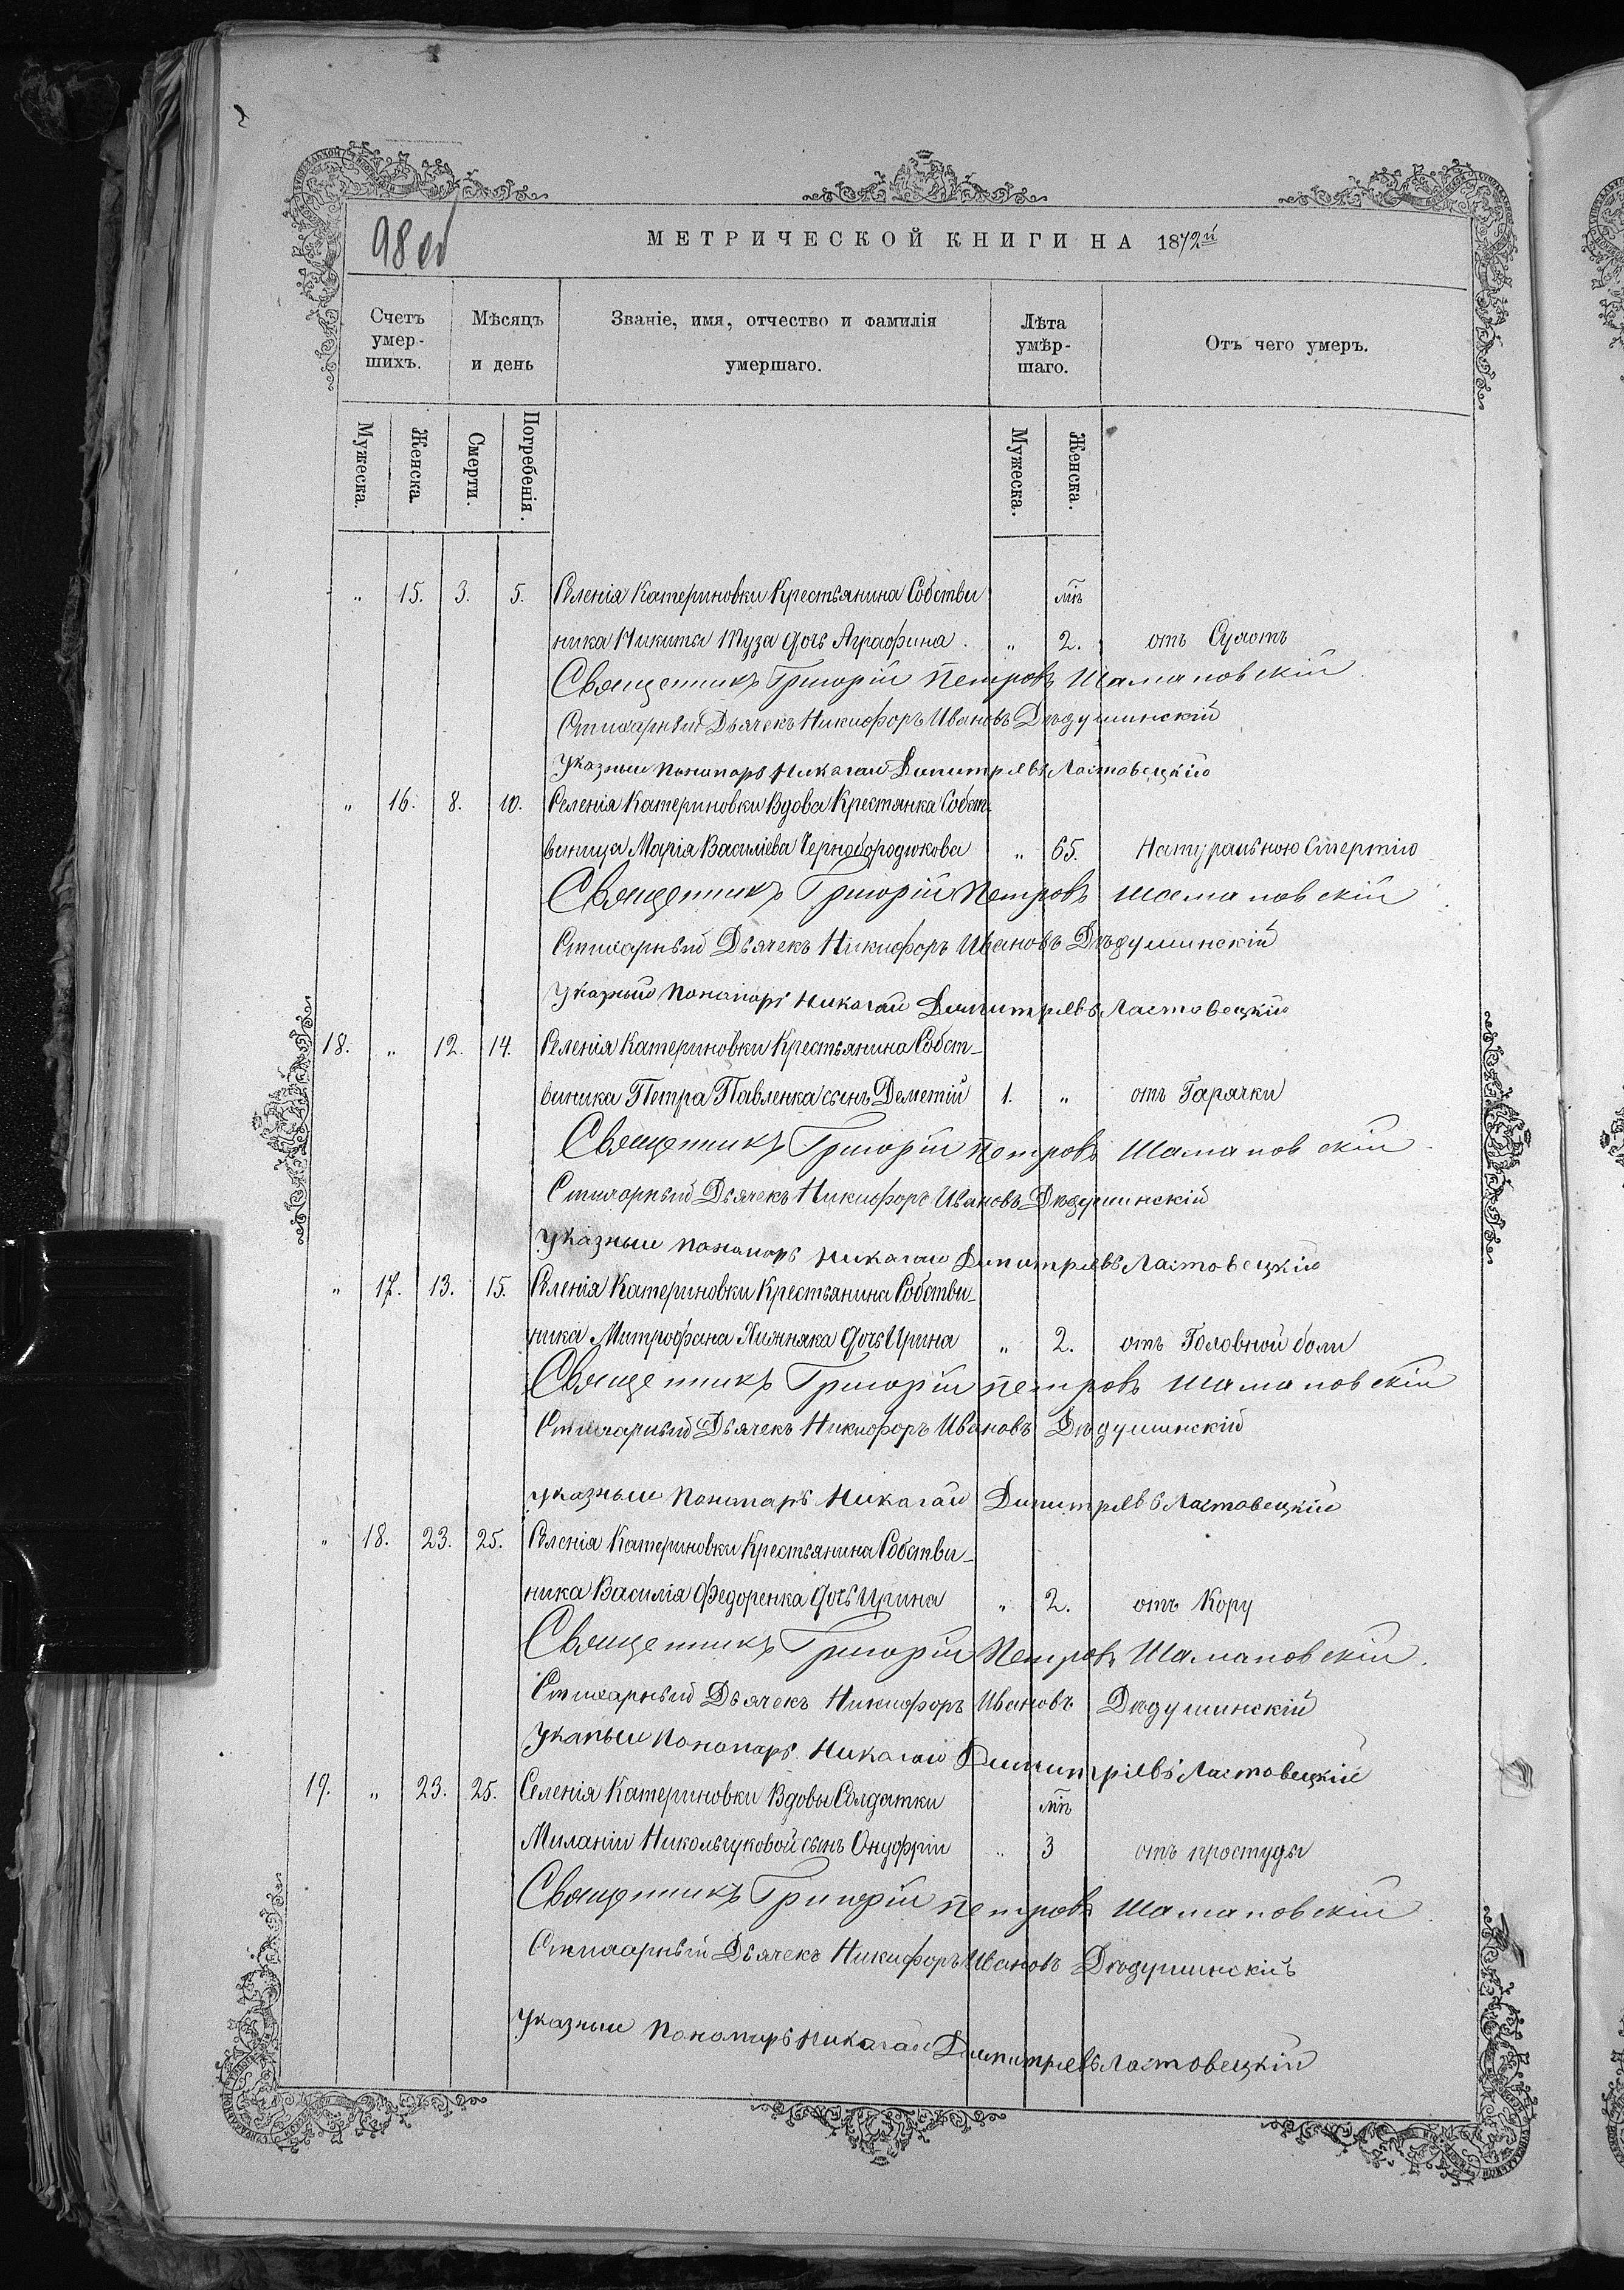 98 об
МЕТРИЧЕСКОЙ КНИГИ НА 1872й
Счетъ умер-шихъ. Мѣсяцъ и день Званіе, имя, отчество и фамилія умершаго. Лѣта умѣр-шаго. Отъ чего умеръ.
Мужеска. Женска. Смерти. Погребенія. Мужеска. Женска.
" 15. 3. 5. Селенія Катериновки Крестьянина Собстви мѣ
ника Никиты Муза дочь Аграфина. " 2. отъ Сухотъ
Священникъ Григорій Петровъ Шамановскій.
Стихарный Дьячекъ Никифоръ Ивановъ Дѣдушинскій
Указный Пономарь Николай Димитріевъ Ластовецкій
" 16. 8. 10. Селенія Катериновки Вдова Крестянка Собст-
виница Марія Василіева Чернобородюкова " 65. Натуральною Смертію
Священникъ Григорій Петровъ Шамановскій
Стихарный Дьячекъ Никифоръ Ивановъ Дѣдушинскій
Указный Пономарь Николай Димитріевъ Ластовецкій
18. " 12. 14. Селенія Катериновки Крестьянина Собст-
виника Петра Павленка сынъ Деметій 1. " отъ Гарячки
Священникъ Григорій Петровъ Шамановскій
Стихарный Дьячекъ Никифоръ Ивановъ Дѣдушинскій
Указный Пономарь Николай Димитріевъ Ластовецкій
" 17. 13. 15. Селенія Катериновки Крестьянина Собстви-
ника Митрофана Хижняка дочь Ирина " 2. отъ Головной боли
Священникъ Григорій Петровъ Шамановскій
Стихарный Дьячекъ Никифоръ Ивановъ Дѣдушинскій
Указный Пономарь Николай Димитріевъ Ластовецкій
" 18. 23. 25. Селенія Катериновки Крестьянина Собстви-
ника Василія Федоренка дочь Ирина " 2. отъ Кору
Священникъ Григорій Петровъ Шамановскій.
Стихарный Дьячекъ Никифоръ Ивановъ Дѣдушинскій
Укапый Пономарь Николай Димитріевъ Ластовецкій
19. " 23. 25. Селенія Катериновки Вдовы Солдатки мѣ
Миланіи Никольчуковой сынъ Онуфрій " 3 отъ простуды
Священникъ Григорій Петровъ Шамановскій.
Стихарный Дьячекъ Никифоръ Ивановъ Дѣдушинскій
Указный Пономарь Николай Димитріевъ Ластовецкій